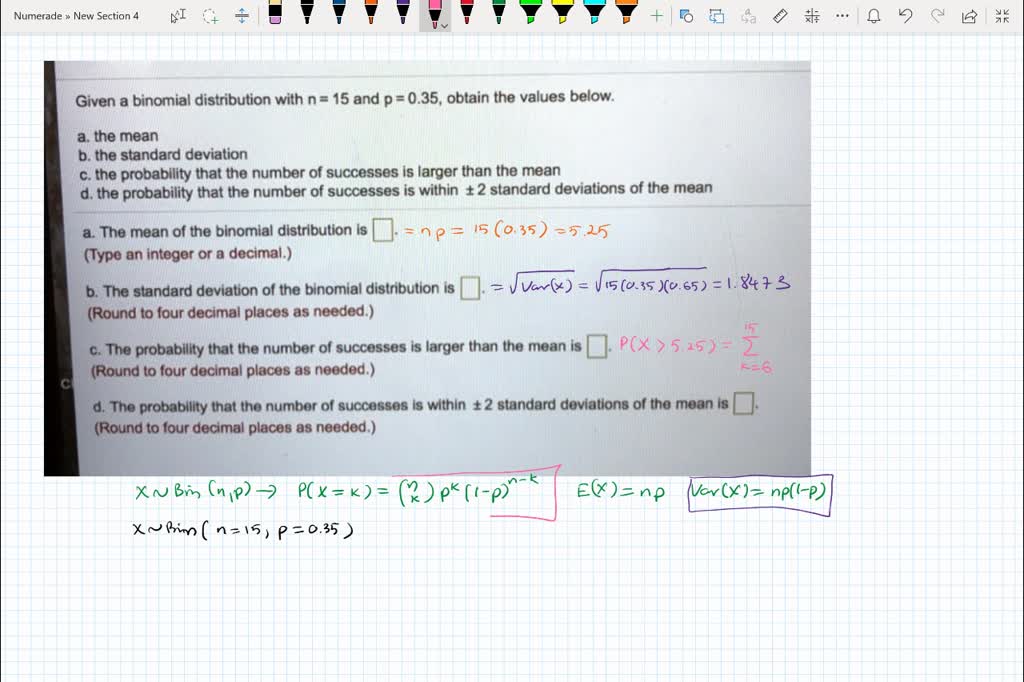 Numerade » New Section 4
Given a binomial distribution with n = 15 and p = 0.35, obtain the values below.
a. the mean
b. the standard deviation
c. the probability that the number of successes is larger than the mean
d. the probability that the number of successes is within ± 2 standard deviations of the mean
a. The mean of the binomial distribution is □. = np = 15(0.35) = 5.25
(Type an integer or a decimal.)
b. The standard deviation of the binomial distribution is □. = √Var(x) = √15(0.35)(0.65) = 1.8473
(Round to four decimal places as needed.)
c. The probability that the number of successes is larger than the mean is □. P(X > 5.25) = Σ 15 k=6
(Round to four decimal places as needed.)
d. The probability that the number of successes is within ± 2 standard deviations of the mean is □.
(Round to four decimal places as needed.)
X ~ Bin (n,p) → P(X = k) = (n k) p^k (1-p)^n-k E(X) = np Var(X) = np(1-p)
X ~ Bin ( n = 15, p = 0.35 )